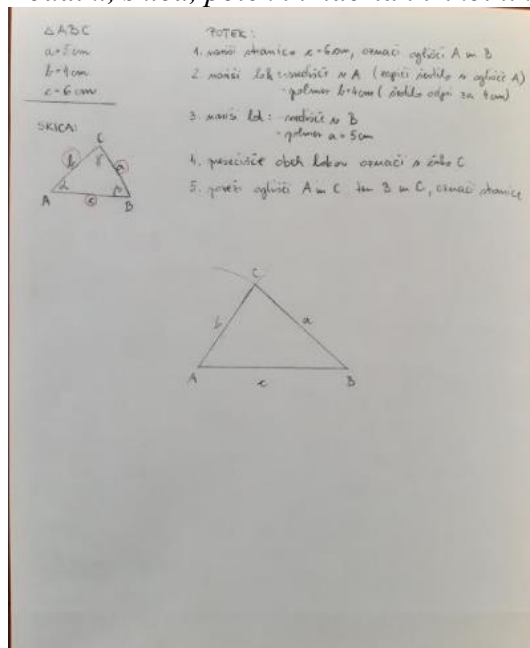 △ABC
a=5cm
b=4cm
c=6cm
SKICA:
C
b γ a
α β
A c B
POTEK:
1. nariši stranico c=6cm, označi oglišči A in B
2. nariši lok: - središče v A (zapiči šestilo v oglišče A)
- polmer b=4cm (šestilo odpri za 4cm)
3. nariši lok: - središče v B
- polmer a=5cm
4. presečišče obeh lokov označi s črko C
5. poveži oglišči A in C ter B in C, označi stranice
C
b a
A c B